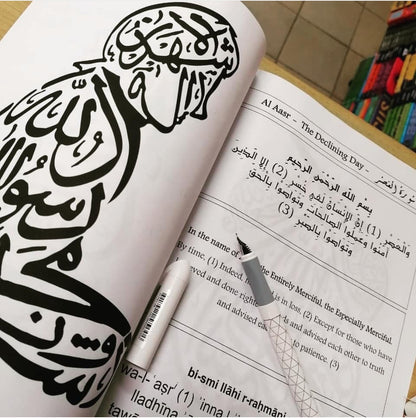 اشهد
الله
رسول
Al Aasr - The Declining Day - سورة العصر
بِسْمِ اللهِ الرَّحْمَنِ الرَّحِيمِ
وَالْعَصْرِ (1) إِنَّ الإِنْسَانَ لَفِي خُسْرٍ (2) إِلا الَّذِينَ
آمَنُوا وَعَمِلُوا الصَّالِحَاتِ وَتَوَاصَوْا بِالْحَقِّ
وَتَوَاصَوْا بِالصَّبْرِ
(3)
In the name of the Entirely Merciful, the Especially Merciful.
By time, (1) Indeed is in loss, (2) Except for those who have
and done right ds and advised each other to truth
and advised each to patience. (3)
bi-smi llāhi r-raḥmāni
wa-l-ʿaṣr¹ (1) ʾinna l
lladhīna